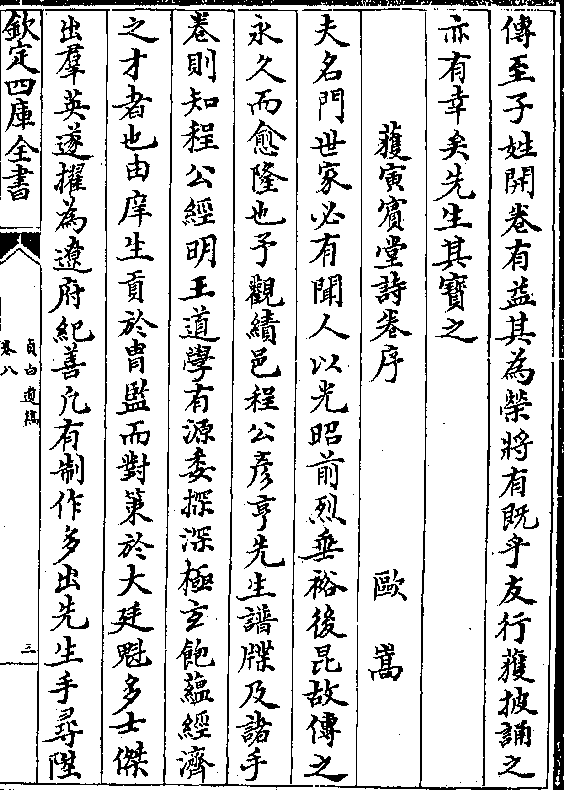 傳至子姓開卷有益其為榮將有既乎友行獲披誦之
亦有幸矣先生其寶之
獲寅賔堂詩卷序　歐嵩
夫名門世家必有聞人以光昭前烈垂裕後昆故傳之
永久而愈隆也予觀績邑程公彥亨先生譜牒及諸手
卷則知程公經明王道學有源委探深極玄飽蘊經濟
之才者也由庠生貢於胄監而對策於大廷魁多士傑
出羣英遂擢為遼府紀善凡有制作多出先生手尋陞
欽定四庫全書
貞白遺稿
卷八
三